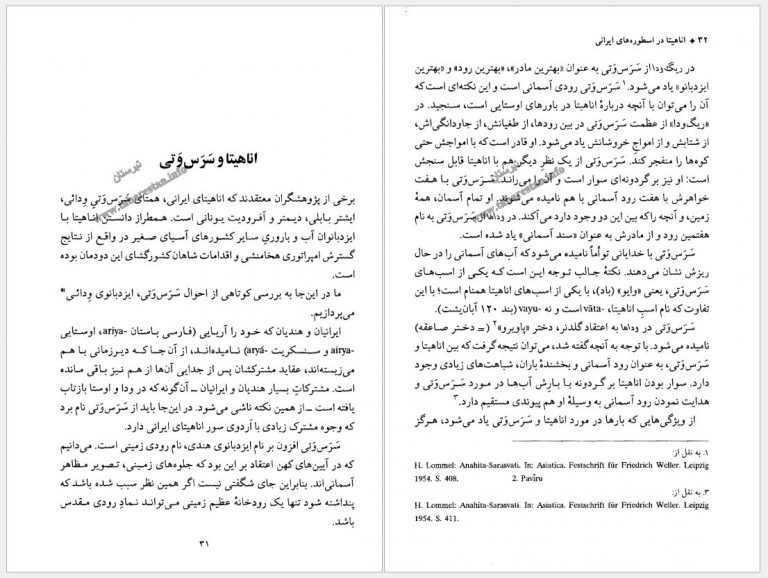 اناهیتا و سَرَس‌وَتی
برخی از پژوهشگران معتقدند که اناهیتای ایرانی، همتای سَرَس‌وَتیِ ودائی،
ایشتر بابلی، دیمتر و آفرودیت یونانی است. همطراز دانستن اناهیتا با
ایزدبانوان آب و باروریِ سایر کشورهای آسیای صغیر در واقع از نتایج
گسترش امپراتوری هخامنشی و اقدامات شاهان کشورگشای این دودمان بوده
است.
ما در این‌جا به بررسی کوتاهی از احوال سَرَس‌وَتی، ایزدبانوی ودائی*
می‌پردازیم.
ایرانیان و هندیان که خود را آریایی (فارسی باستان -ariya، اوستایی
-airya و سنسکریت -aryá) نامیده‌اند، از آن‌جا که دیرزمانی با هم
می‌زیسته‌اند، عقاید مشترکشان پس از جدایی آن‌ها از هم نیز باقی مانده
است. مشترکاتِ بسیار هندیان و ایرانیان ـ آن‌گونه که در ودا و اوستا بازتاب
یافته است ـ از همین نکته ناشی می‌شود. در این‌جا باید از سَرَس‌وَتی نام برد
که وجوه مشترک زیادی با اَردوی سور اناهیتای ایرانی دارد.
سَرَس‌وَتی افزون بر نام ایزدبانوی هندی، نام رودی زمینی است. می‌دانیم
که در آیین‌های کهن اعتقاد بر این بود که جلوه‌های زمینی، تصویر مظاهر
آسمانی‌اند. بنابراین جای شگفتی نیست اگر همین نظر سبب شده باشد که
پنداشته شود تنها یک رودخانهٔ عظیم زمینی می‌تواند نمادِ رودی مقدس
باشد.
۳۱
نبرستان
www.tabarestan.info
۳۲ ♦ اناهیتا در اسطوره‌های ایرانی
در ریگ‌ودا از سَرَس‌وَتی به عنوان «بهترین مادر»، «بهترین رود» و «بهترین
ایزدبانو» یاد می‌شود.۱ سَرَس‌وَتی رودی آسمانی است و این نکته‌ای است که
آن را می‌توان با آنچه دربارهٔ اناهیتا در باورهای اوستایی است، سنجید. در
«ریگ‌ودا» از عظمت سَرَس‌وَتی در بین رودها، از طغیانش، از جاودانگی‌اش،
از شتابش و از امواج خروشانش یاد می‌شود. او قادر است که با امواجش حتی
کوه‌ها را منفجر کند. سَرَس‌وَتی از یک نظرِ دیگر هم با اناهیتا قابل سنجش
است: او نیز بر گردونه‌ای سوار است و آن را می‌راند. سَرَس‌وَتی با هفت
خواهرش با هفت رود آسمانی با هم نامیده می‌شوند. او تمام آسمان، همهٔ
زمین، و آنچه را که بین این دو وجود دارد می‌آکند. در وداها از سَرَس‌وَتی به نام
هفتمین رود و از مادرش به عنوان «سند آسمانی» یاد شده است.
سَرَس‌وَتی با خدایانی توأماً نامیده می‌شود که آب‌های آسمانی را در حال
ریزش نشان می‌دهند. نکتهٔ جالب توجه این است که یکی از اسب‌های
سَرَس‌وَتی، یعنی «وایو» (باد)، با یکی از اسب‌های اناهیتا همنام است؛ با این
تفاوت که نام اسبِ اناهیتا، -vāta است و نه -vayu (بند ۱۲۰ آبان‌یشت).
سَرَس‌وَتی در وداها به اعتقاد گلدنر، دختر «پاویرو»۲ (= دختر صاعقه)
نامیده می‌شود. با توجه به آنچه گفته شد، می‌توان نتیجه گرفت که بین اناهیتا و
سَرَس‌وَتی، به عنوان رود آسمانی و بخشندهٔ باران، شباهت‌های زیادی وجود
دارد. سوار بودن اناهیتا بر گردونه با بارِش آب‌ها در مورد سَرَس‌وَتی و
هدایت نمودن رود آسمانی به وسیلهٔ او هم پیوندی مستقیم دارد.۳
از ویژگی‌هایی که بارها در مورد اناهیتا و سَرَس‌وَتی یاد می‌شود، هرگز
۱. به نقل از:
H. Lommel: Anahita-Sarasvati. In: Asiatica. Festschrift für Friedrich Weller. Leipzig
1954. S. 408. 2. Pavīru
۳. به نقل از:
H. Lommel: Anahita-Sarasvati. In: Asiatica. Festschrift für Friedrich Weller. Leipzig
1954. S. 411.
نبرستان
www.tabarestan.info